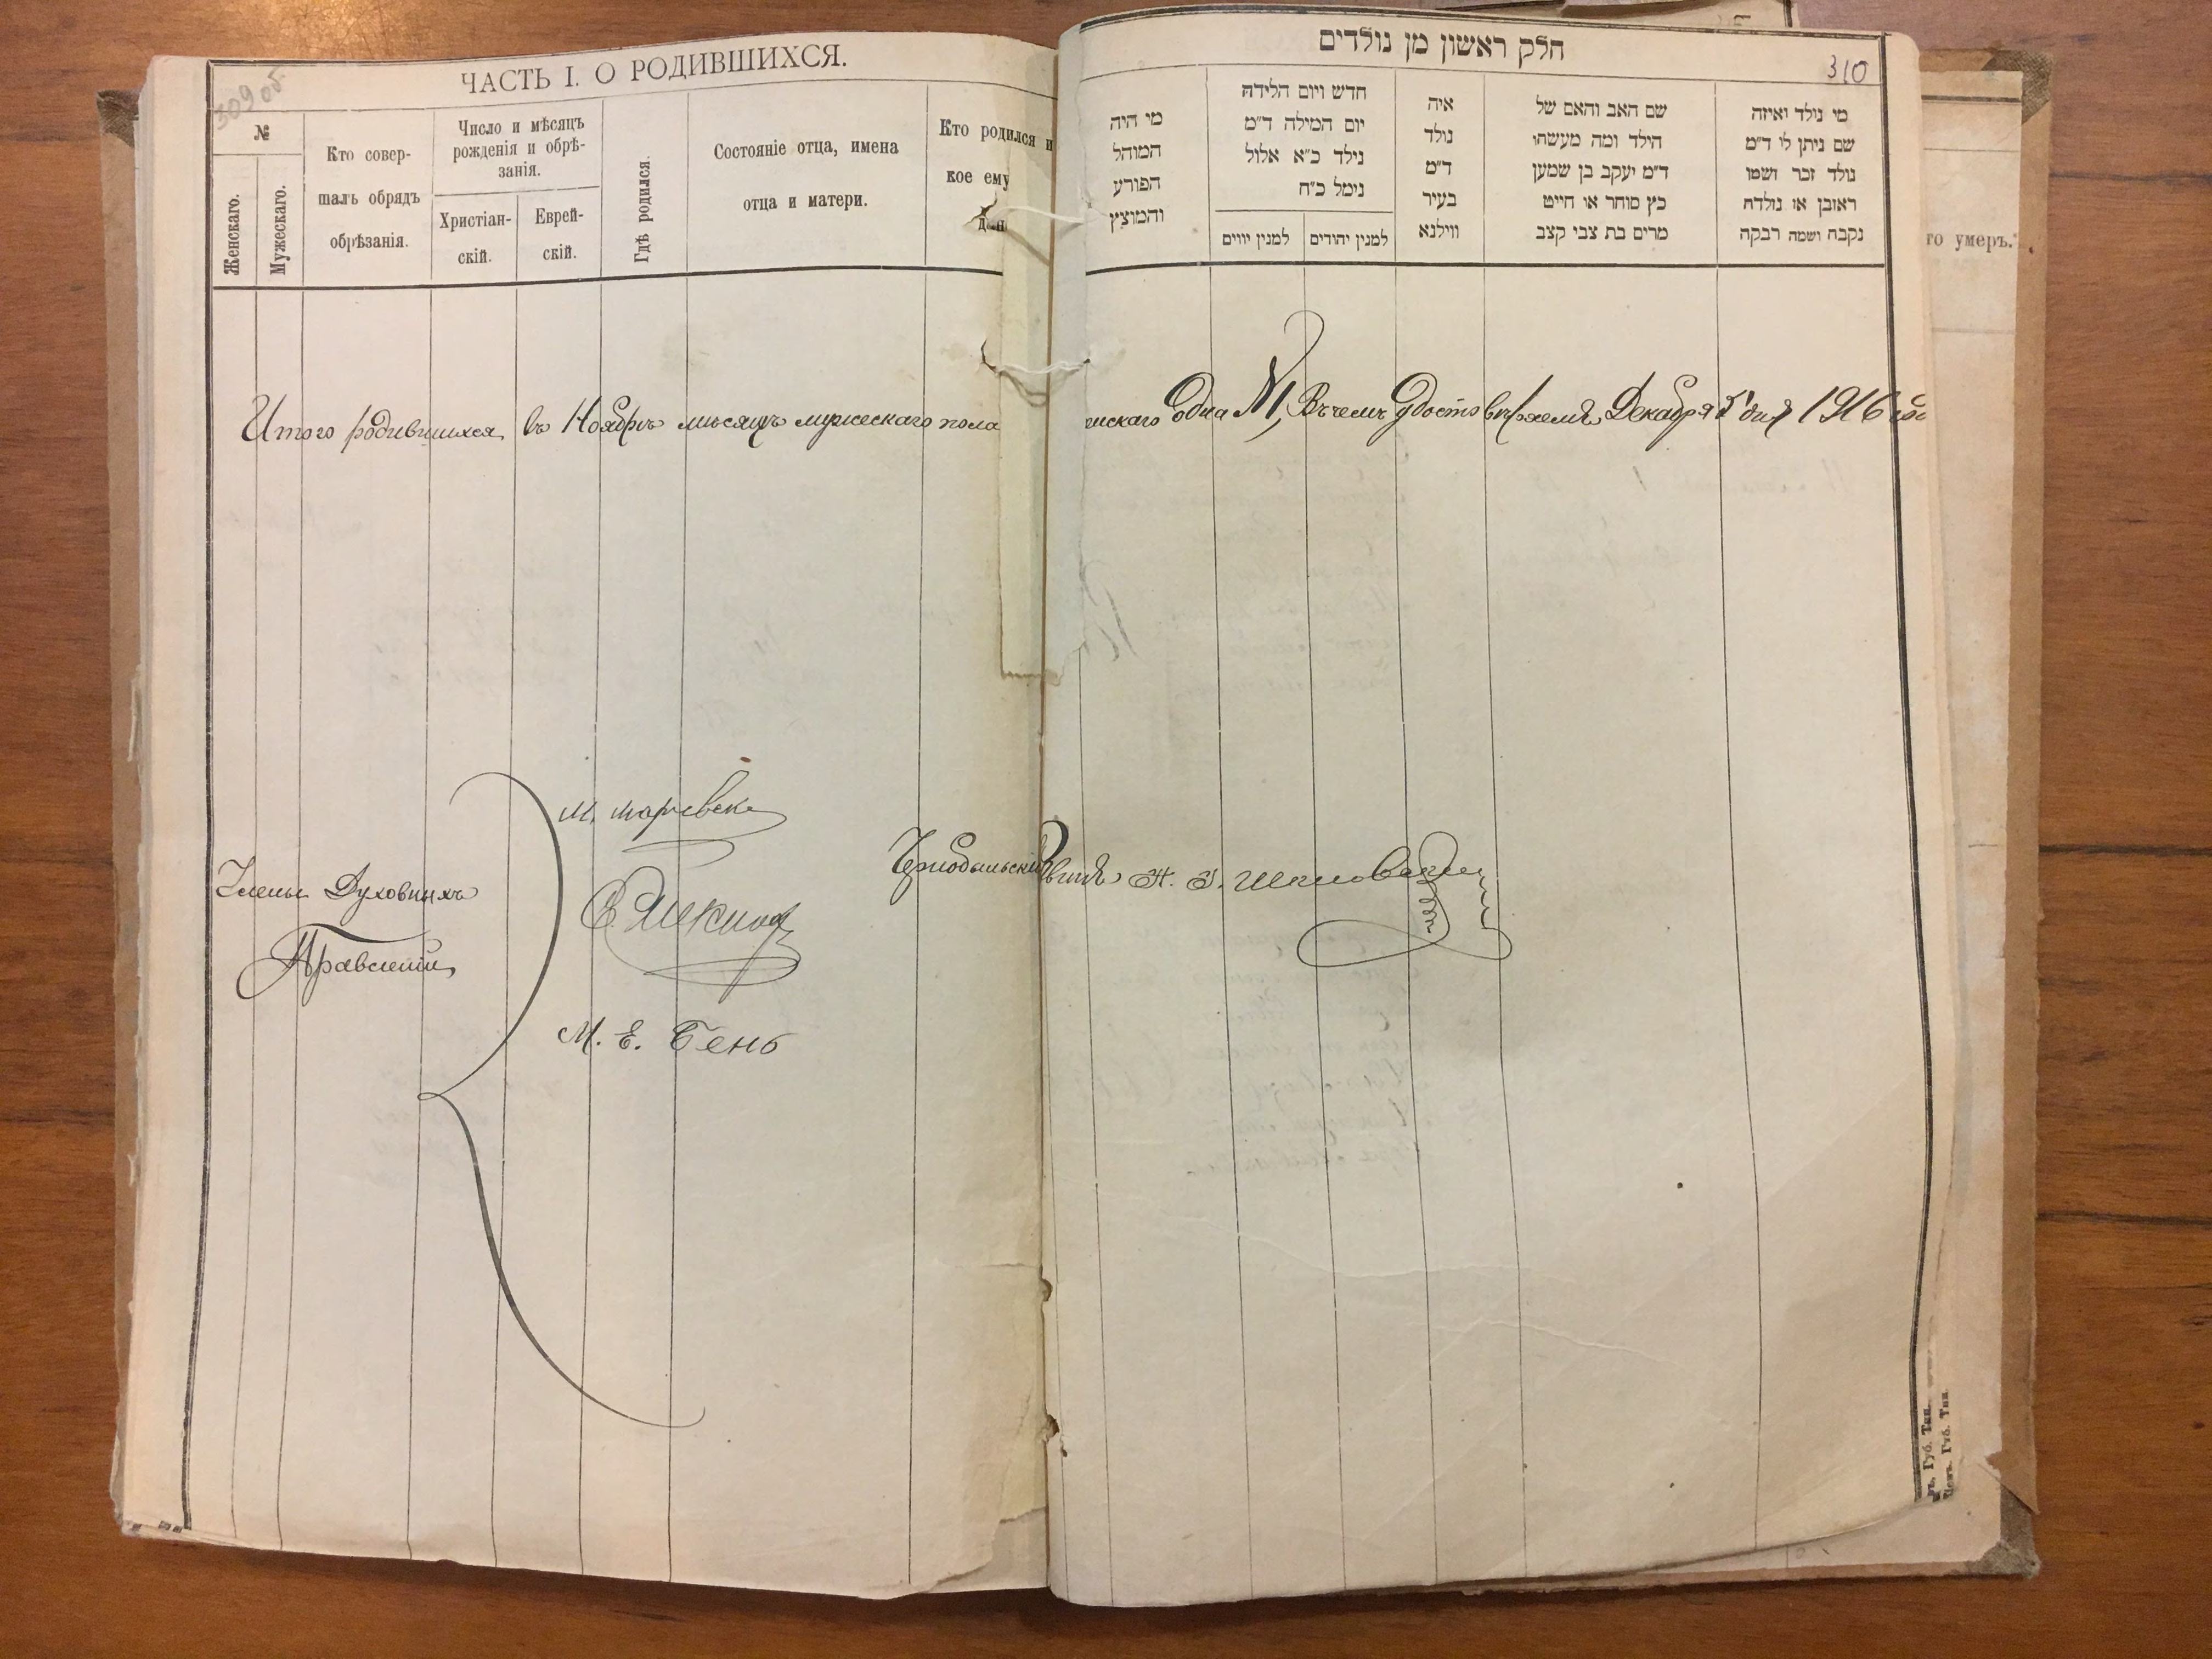 309 об
ЧАСТЬ I. О РОДИВШИХСЯ.
№
Женскаго.
Мужескаго.
Кто совер-
шалъ обрядъ
обрѣзанія.
Число и мѣсяцъ
рожденія и обрѣ-
занія.
Христіан-
скій.
Еврей-
скій.
Гдѣ родился.
Состояніе отца, имена
отца и матери.
Кто родился и
кое ему
Итого родившихся въ Ноябрѣ мѣсяцѣ мужескаго пола
Члены Духовныхъ
Правленій
М. Е. Бень
חלק ראשון מן נולדים
310
מי היה
המוהל
הפורע
והמוצץ
חדש ויום הלידה
יום המילה ד״מ
נילד כ״א אלול
נימל כ״ח
למנין יווים
למנין יהודים
איה
נולד
ד״מ
בעיר
ווילנא
שם האב והאם של
הילד ומה מעשהו
ד״מ יעקב בן שמעון
כץ סוחר או חייט
מרים בת צבי קצב
מי נולד ואיזה
שם ניתן לו ד״מ
נולד זכר ושמו
ראובן או נולדה
נקבה ושמה רבקה
енскаго одна №1, Въ чемъ Удостовѣряемъ, Декабря 5 дня 1916
Чернобыльскій Раввинъ
го умеръ.
Губ. Тип.
Губ. Тип.